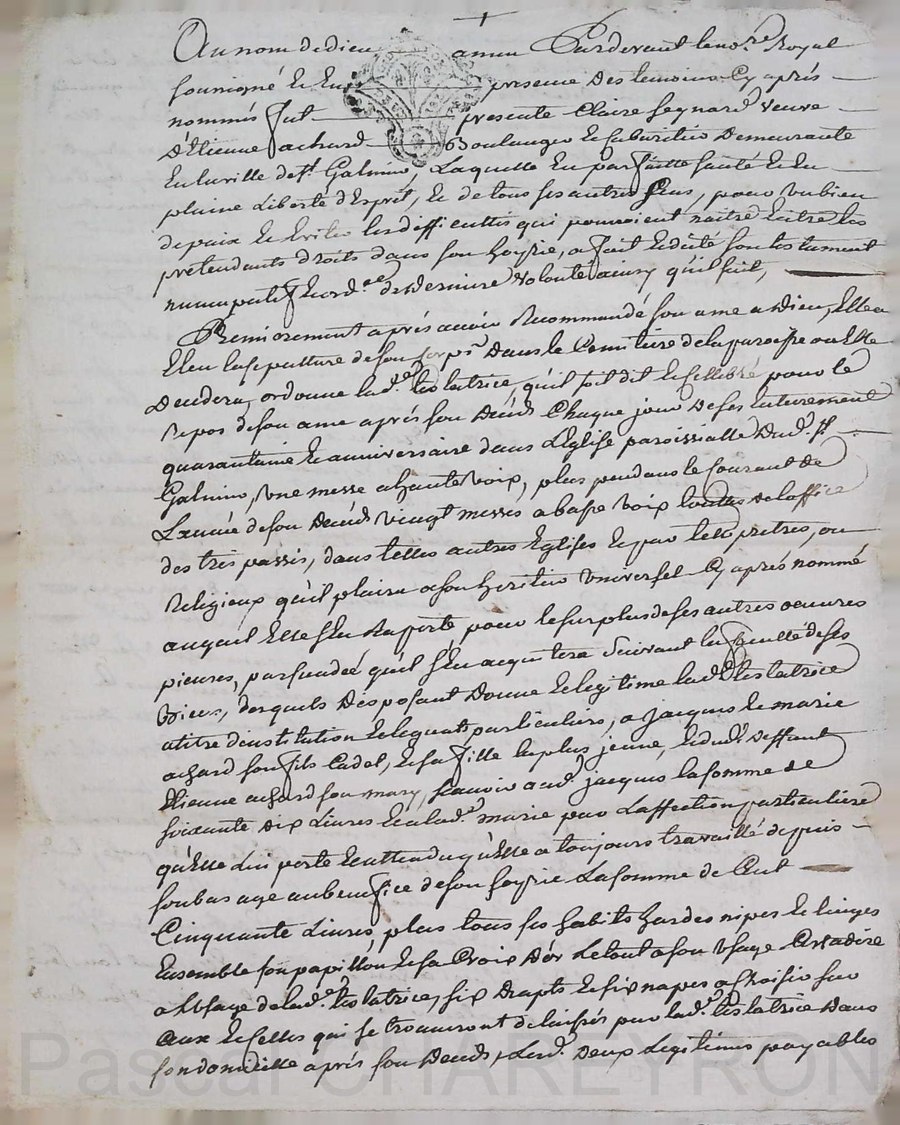 Au nom de dieu amen Pardevant le no.re Royal
soussigné Et En presence des temoins Cy aprés
nommés fut presente Claire Seynard veuve
d'Etienne achard Boulanger Et Cabaretier Demeurante
En la ville de st. Galmier, Laquelle En parfaitte santé Et En
pleine Liberté d'Esprit, Et de tous ses autres sens, pour un bien
de paix Et Eviter les difficultés qui pourroient naitre Entre les
prétendants droits dans son hoyrie, a fait Et dicté son testament
nuncupatif Et ord.re de derniere volonté ainsy qu'il suit,
Premierement aprés avoir Recommandé son ame a Dieu, Elle a
Eleu la sepulture de son corps Dans le Cemitiere de la paroisse ou Elle
Decedera, ordonne lad.e testatrice, qu'il soit dit Et cellebré pour le
Repos de son ame aprés son Decés Chaque jour de ses Enterrement
quarantaine Et anniversaire dans L'Eglise paroissialle Dud. st.
Galmier, une messe a haute voix, plus pendans le Courant de
L'année de son Decés vingt messes a basse voix touttes de l'office
des trés passés, dans telles autres Eglises Et par tels pretres, ou
Religieux qu'il plaira a son heritier universel Cy aprés nommé
auquel Elle s'En Raporte, pour le surplus de ses autres oeuvres
pieuses, persuadée qu'il s'En acquitera Suivant la faculté de ses
Biens, desquels Disposant Donne Et legitime lad.e testatrice
a titre d'institution Et legats particuliers, a Jacques Et marie
achard son fils Cadet, Et sa fille la plus jeune, Et dud. deffunt
Etienne achard son mary, sçavoir aud. jacques la somme de
soixante dix Livres Et a lad.e marie pour L'affection particuliere
qu'Elle lui porte Et attendu qu'Elle a toujours travaillé depuis
son bas age au benefice de son hoyrie La somme de Cent
Cinquante Livres, plus tous ses habits hardes nipes Et linges
Ensemble son papillon Et sa Croix D'or Le tout a son usage C'est a dire
a L'usage de lad.e testatrice, six Drapts Et six napes a Choisir sur
Ceux Et celles qui se trouveront delaissés par lad.e testatrice Dans
son domicille aprés son Decés, Lesd. Deux Legitimes payables
Pascal CHAREYRON